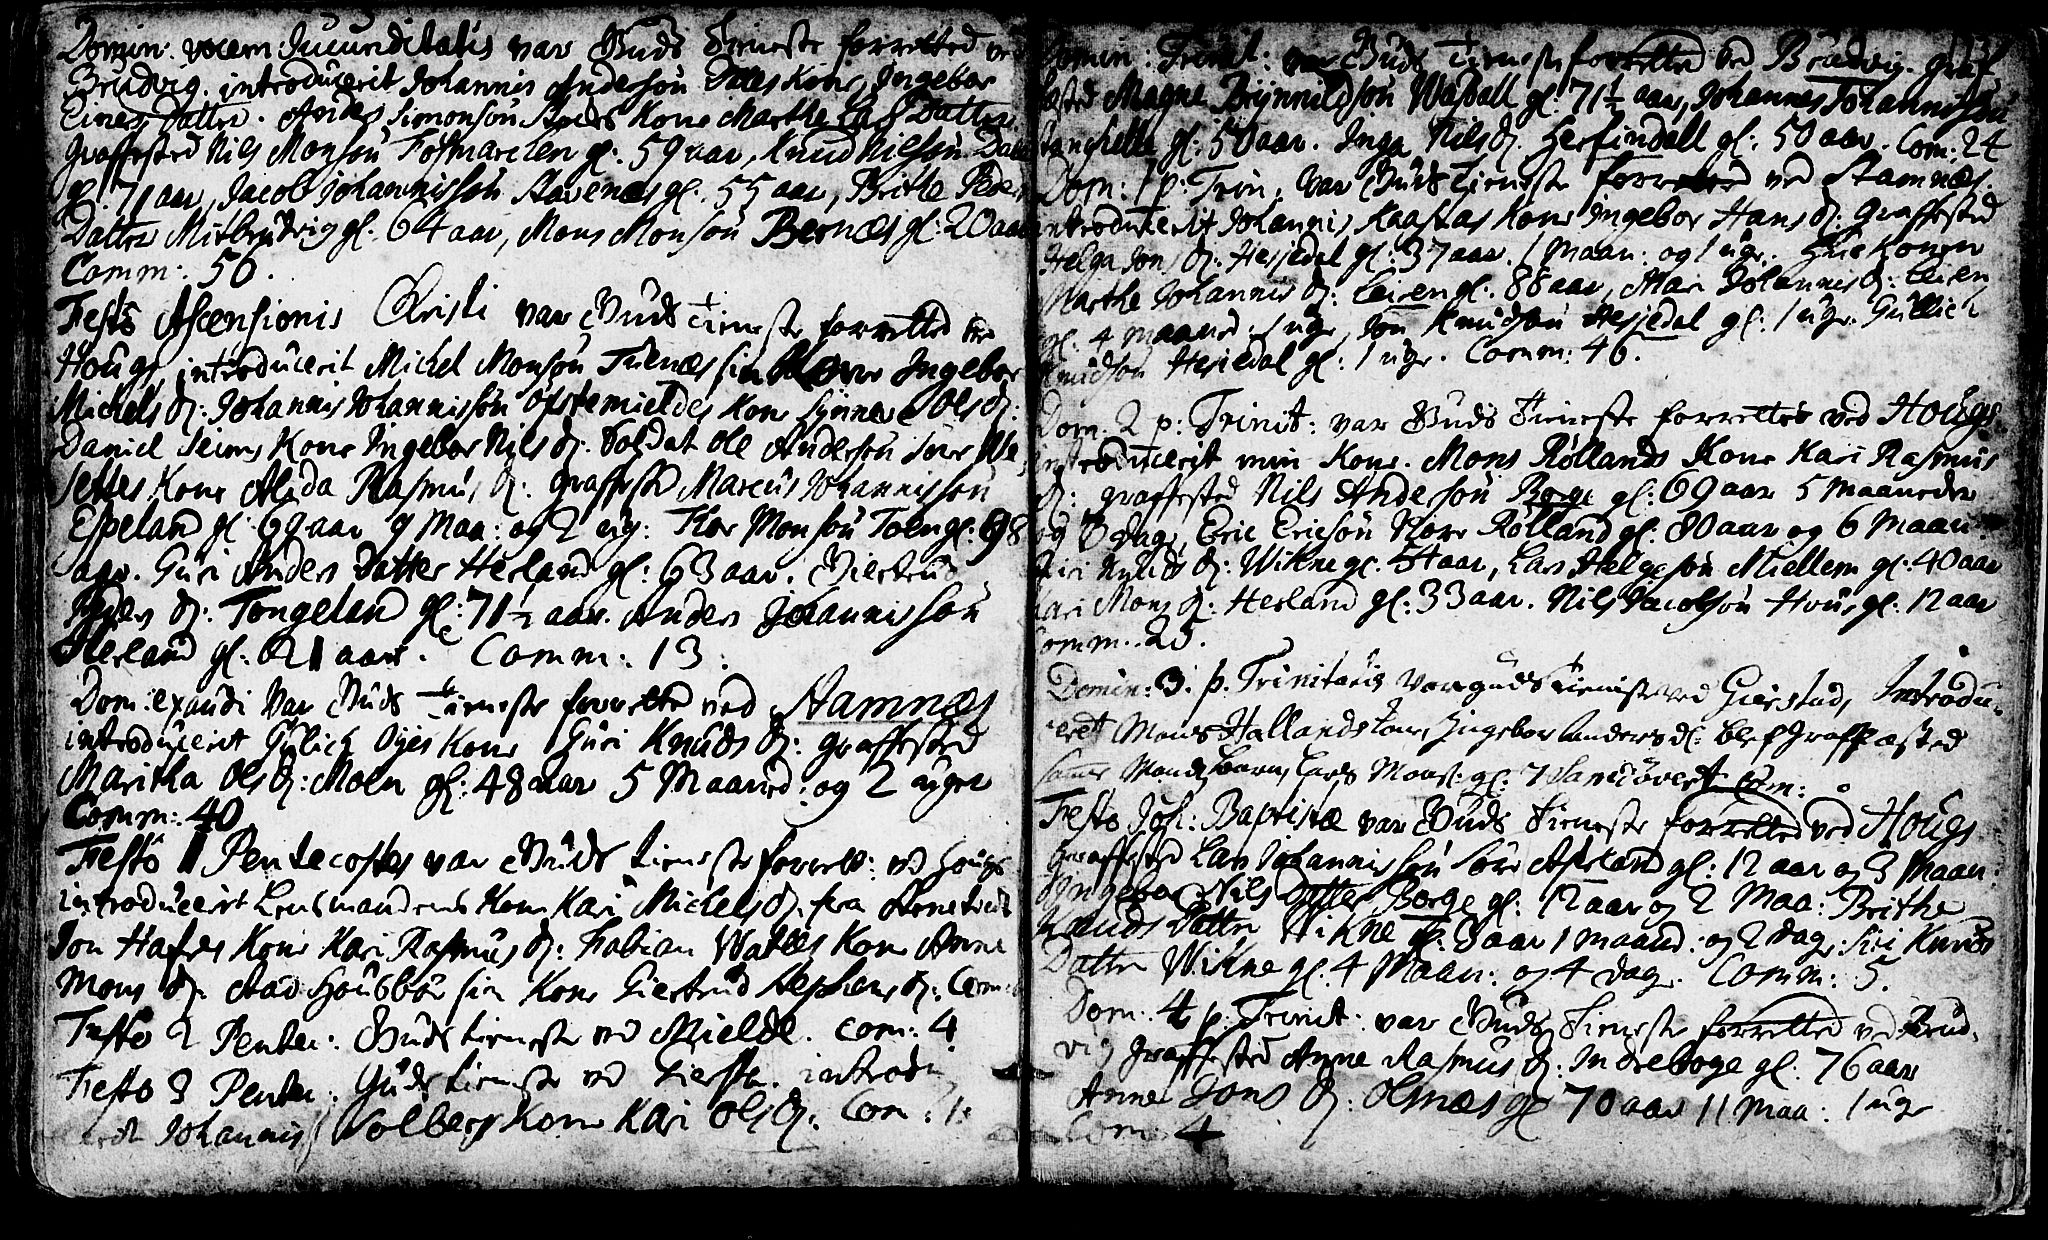 Domin: vocem Jucunditatis var Guds Tieneste forretted ved
Brudvig. introducerit Johannis Andersøn Dales Kone, Ingebor
Einers Datter. Anders Simonsøn Kone Marthe Lars Datter
graffested Nils Monsøn Fosmarcken gl: 59 aar, Knud Nilsøn Dale
gl: 71 aar, Jacob Johannissøn Stavenæs gl: 55 aar, Brithe Peders
Datter Mitbrudvig gl: 64 aar, Mons Monsøn Bernæs gl: 20 aar
Comm: 56.
Festo Ascensionis Christi var Guds Tieneste forretted ved
Hougs introducerit Michel Monsøn sin Kone Ingebor
Michels D: Johannis Johannissøn Kone Synneve Ols D:
Daniel Seims Kone Ingebor Nils D: Soldat Ole Andersøn
Kone Alida Rasmus D: graffested Marcus Johannissøn
Espeland gl: 69 aar 9 Maa: og 2 ug: Monsøn Toen gl: 98
Guri Anders Datter Herland gl: 63 aar. Giertrud
Anders D: Tongeland gl: 71 1/2 aar. Anders Johannissøn
Herland gl: 21 aar. Comm: 13.
Dom: exaudi var Guds Tieneste forretted ved Stamnæs
introducerit Gulich Øyes Kone Guri Knuds D: graffested
Maritha Ols D: Moln gl: 48 aar 5 Maaned: og 2 uger
Comm: 40
Festo 1 Pentecostes var Guds tieneste forrett: ved Hougs
introducerit Lensmandens Kone Kari Michels D. fra
Jon Hafres Kone Kari Rasmus D: Fabian Kone Anne
Mons D. sin Kone Giertrud Stephens D: Com:
Festo 2 Pentec: Guds tieneste ved Mielde. Com: 4
Festo 3 Pentec: Guds tieneste ved introdu
Johannis Kone Kari Ols D: Com: 1.
Domin: Trinit: var Guds Tieneste forretted ved Brudvig. graf
fested Magne Brynnildsøn gl: 71 1/2 aar, Johannes Johannissøn
gl: 50 aar. Inga Nils D. Herfindall gl: 50 aar. Com: 24
Dom: 1 p: Trin: var Guds Tieneste forretted ved Stamnæs.
introducerit Johannis Kone Ingebor Hans D: graffested
Helga Jons D: Hesjedal gl: 37 aar. 1 Maan: og 1 uge.
Marthe Johannis D: Leiren gl: 88 aar, Mari Johannis D: Leiren
gl: 4 Maaned 1 uge, Jon Knudsøn Hesjedal gl: 1 uge. Gullich
Knudsøn Hesjedal gl: 1 uge. Comm: 46.
Dom: 2 p: Trinit: var Guds Tieneste forrettet ved Hougs.
introducerit min Kone. Mons Røllands Kone Kari Rasmus
D: graffested Nils Andersøn Borge gl: 69 aar 5 Maaneder
og 3 dage, Eric Ericsøn Rolland gl: 80 aar og 6 Maan:
Siri Knuds D: Wikne gl: 54 aar, Lars Helgesøn Miellem gl: 40 aar
Kari Mons D: Herland gl: 33 aar. Nils Jacobsøn Hous gl: 12 aar
Comm: 25.
Domin: 3. p. Trinitatis var guds tieniste ved Giersted, Introdu-
ceret Mons Hallands Ingebor Anders d: blef graffested
Lars Mons: gl: 7 Com: 0
Festo Joh: Baptistæ var Guds Tieneste forretted ved Hougs
graffested Lars Johannissøn gl: 12 aar og 3 Maan:
Ingebor Nils Datter Borge gl: 12 aar og 2 Maa: Brithe
Knuds Datter Wikne gl: 3 aar 1 maand: og 2 dage: Siri Knuds
Datter Wikne gl: 4 Maan: og 4 dage. Comm: 5.
Dom: 4 p: Trinit: var Guds Tieneste forretted ved Brud-
vig graffested Anne Rasmus D: Indreboge gl: 76 aar
Anne Jons D: Olsnæs gl 70 aar 11 Maa: 1 uge
Com: 4